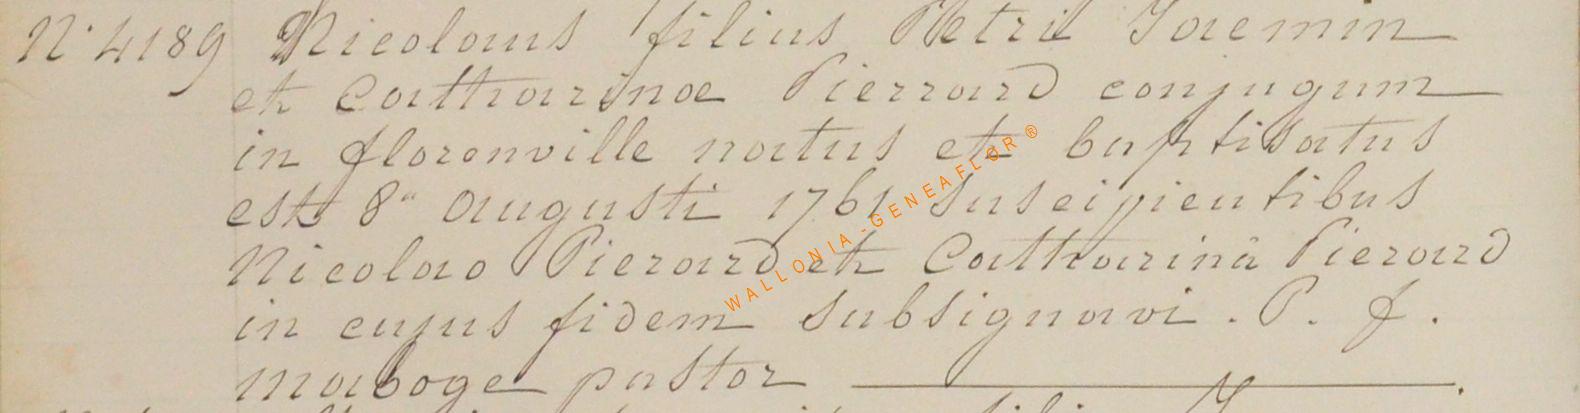 N° 4189 Nicolaus filius Petri Jacmin
et Catharinae Pierrard conjugum
in florenville natus et baptisatus
est 8ª augusti 1761 suscipientibus
Nicolao Pierard et Catharinâ Pierard
in cujus fidem subsignavi . P. f.
maboge pastor
WALLONIA-GENEAFLOR®